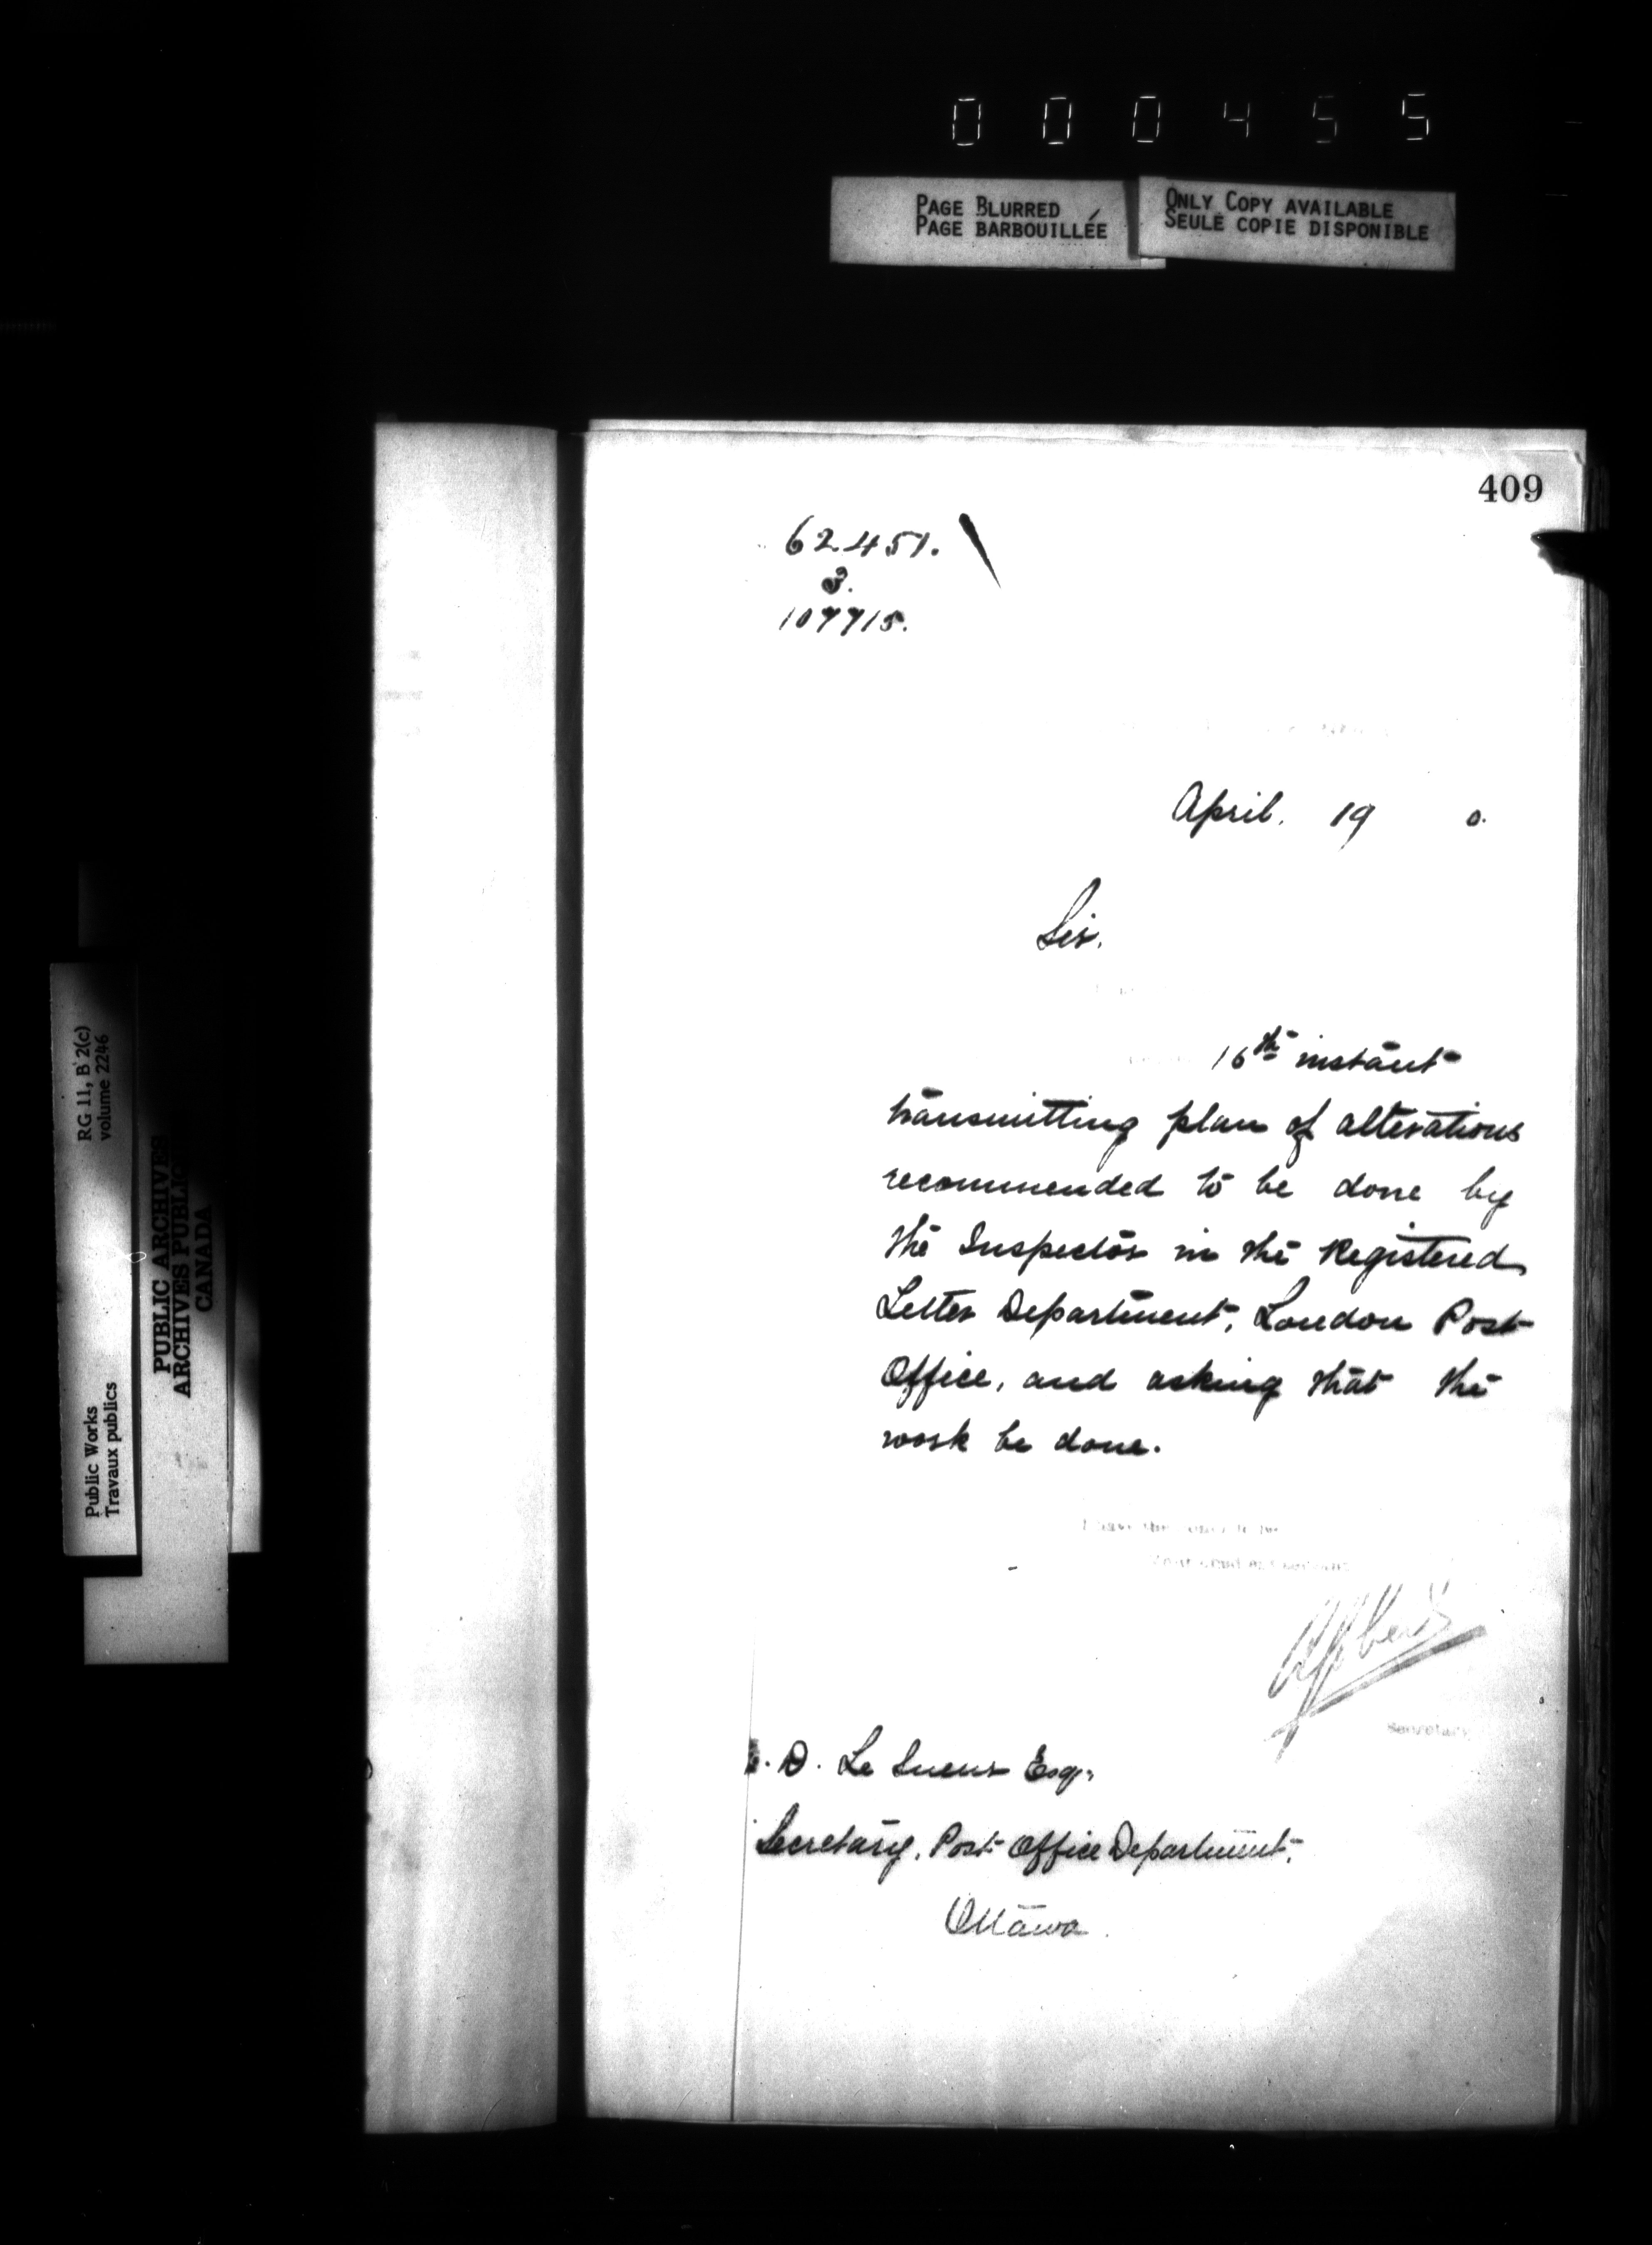 000455
PAGE BLURRED
PAGE BARBOUILLÉE
ONLY COPY AVAILABLE
SEULE COPIE DISPONIBLE
409
62451.
3.
107715.
April. 19 0.
Sir.
16th instant
transmitting plan of alterations
recommended to be done by
the Inspector in the Registered
Letter Department, London Post
Office, and asking that the
work be done.
I have the honor to be
Secretary
D. Le Sueur Esq.,
Secretary, Post Office Department,
Ottawa.
RG 11, B 2(c)
volume 2246
Public Works
Travaux publics
PUBLIC ARCHIVES
ARCHIVES PUBLIQ
CANADA